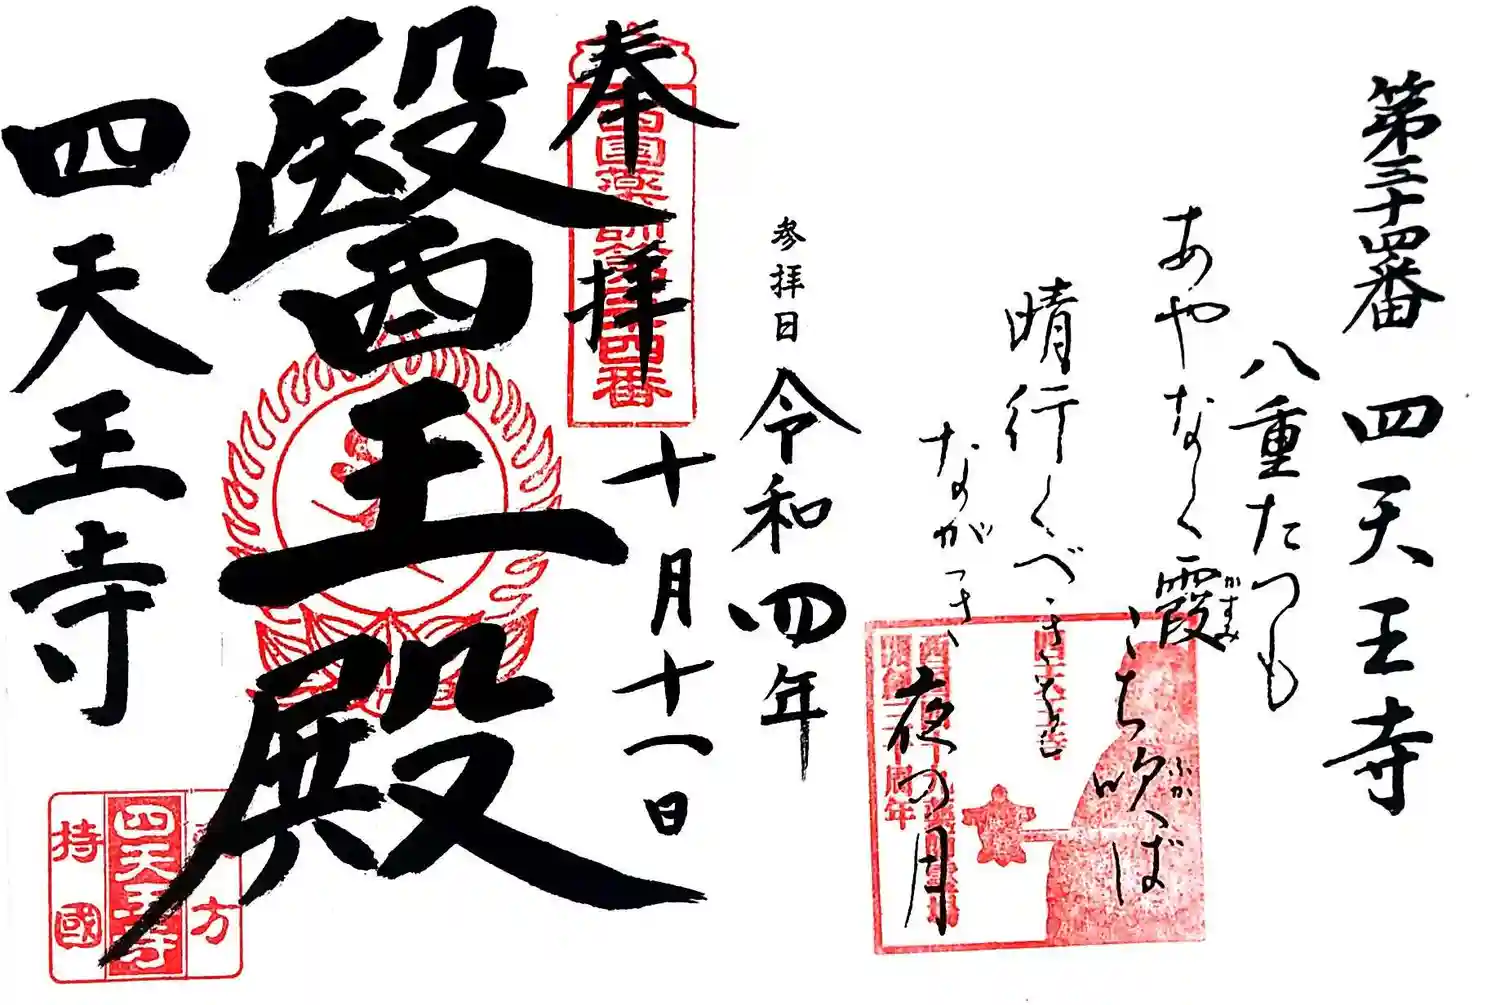 第三十四番 四天王寺
八重たつも
あやなく霞
かすみ
こち吹ば
ふか
晴行くべき
ながつき
夜の月
参拝日 令和四年
十月十一日
奉拝
西国薬師第三十四番
醫王殿
四天王寺
四天王寺
持國
方